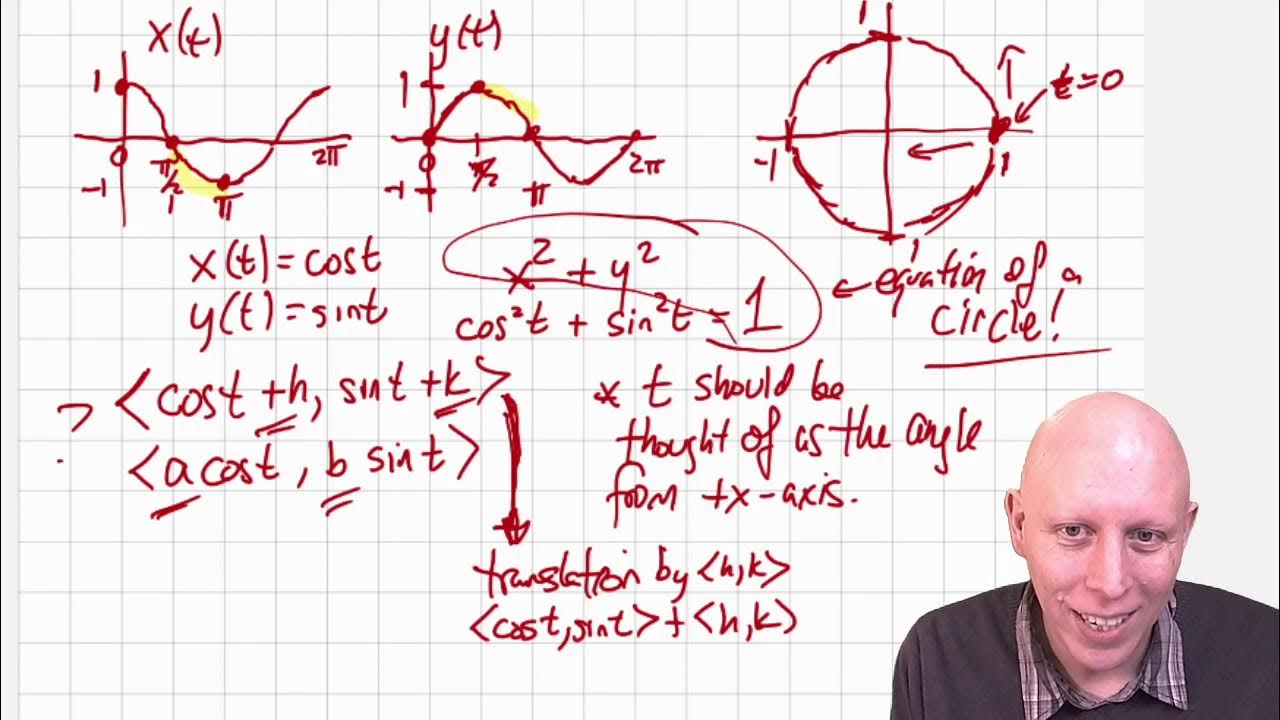 x(t)
y(t)
1
0
π/2
1
π
2π
-1
1
0
π/2
π
2π
-1
1
-1
1
1
t=0
x(t)=cost
y(t)=sint
x² + y²
cos²t + sin²t = 1
← equation of a
circle!
? <cost +h, sint +k>
<a cost, b sint>
* t should be
thought of as the angle
from +x-axis.
translation by <h,k>
<cost,sint> + <h,k>